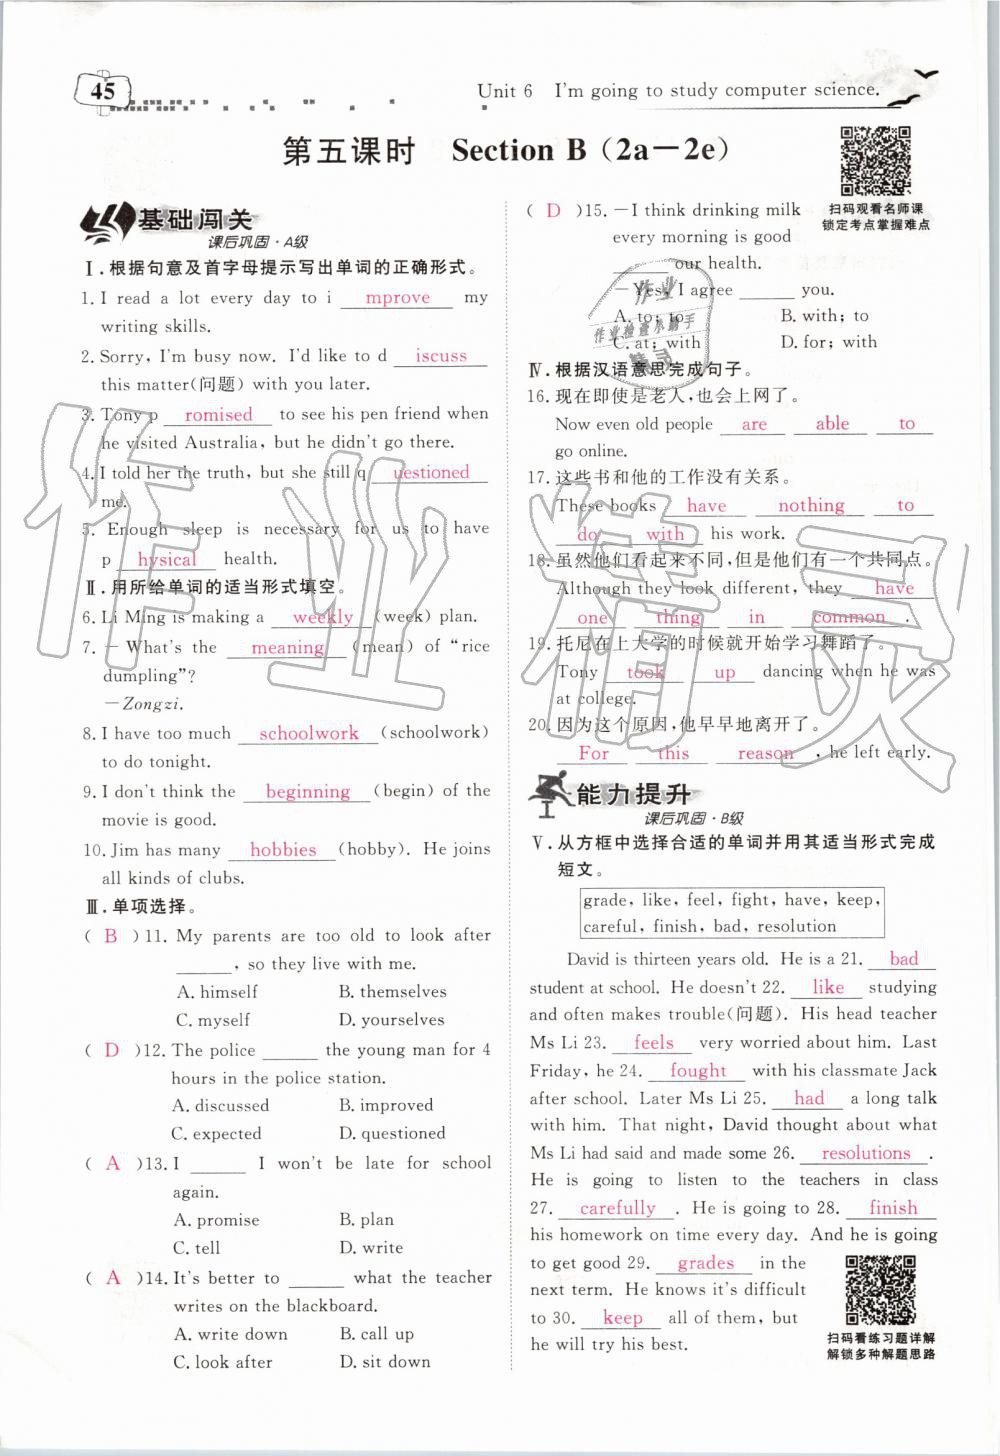 45
Unit 6 I'm going to study computer science.
第五课时 Section B（2a－2e）
基础闯关
课后巩固·A级
Ⅰ.根据句意及首字母提示写出单词的正确形式。
1. I read a lot every day to i mprove my
writing skills.
2. Sorry, I'm busy now. I'd like to d iscuss
this matter(问题) with you later.
3. Tony p romised to see his pen friend when
he visited Australia, but he didn't go there.
4. I told her the truth, but she still q uestioned
me.
5. Enough sleep is necessary for us to have
p hysical health.
Ⅱ.用所给单词的适当形式填空。
6. Li Ming is making a weekly (week) plan.
7. －What's the meaning (mean) of “rice
dumpling”?
－Zongzi.
8. I have too much schoolwork (schoolwork)
to do tonight.
9. I don't think the beginning (begin) of the
movie is good.
10. Jim has many hobbies (hobby). He joins
all kinds of clubs.
Ⅲ.单项选择。
( B )11. My parents are too old to look after
______, so they live with me.
A. himself B. themselves
C. myself D. yourselves
( D )12. The police ______ the young man for 4
hours in the police station.
A. discussed B. improved
C. expected D. questioned
( A )13. I ______ I won't be late for school
again.
A. promise B. plan
C. tell D. write
( A )14. It's better to ______ what the teacher
writes on the blackboard.
A. write down B. call up
C. look after D. sit down
( D )15. －I think drinking milk
every morning is good
______ our health.
－Yes, I agree ______ you.
A. to; to B. with; to
C. at; with D. for; with
扫码观看名师课
锁定考点掌握难点
Ⅳ.根据汉语意思完成句子。
16. 现在即使是老人,也会上网了。
Now even old people are able to
go online.
17. 这些书和他的工作没有关系。
These books have nothing to
do with his work.
18. 虽然他们看起来不同,但是他们有一个共同点。
Although they look different, they have
one thing in common .
19. 托尼在上大学的时候就开始学习舞蹈了。
Tony took up dancing when he was
at college.
20. 因为这个原因,他早早地离开了。
For this reason , he left early.
能力提升
课后巩固·B级
Ⅴ.从方框中选择合适的单词并用其适当形式完成
短文。
grade, like, feel, fight, have, keep,
careful, finish, bad, resolution
David is thirteen years old. He is a 21. bad
student at school. He doesn't 22. like studying
and often makes trouble(问题). His head teacher
Ms Li 23. feels very worried about him. Last
Friday, he 24. fought with his classmate Jack
after school. Later Ms Li 25. had a long talk
with him. That night, David thought about what
Ms Li had said and made some 26. resolutions .
He is going to listen to the teachers in class
27. carefully . He is going to 28. finish
his homework on time every day. And he is going
to get good 29. grades in the
next term. He knows it's difficult
to 30. keep all of them, but
he will try his best.
扫码看练习题详解
解锁多种解题思路
作业精灵
作业
作业检查小助手
精灵